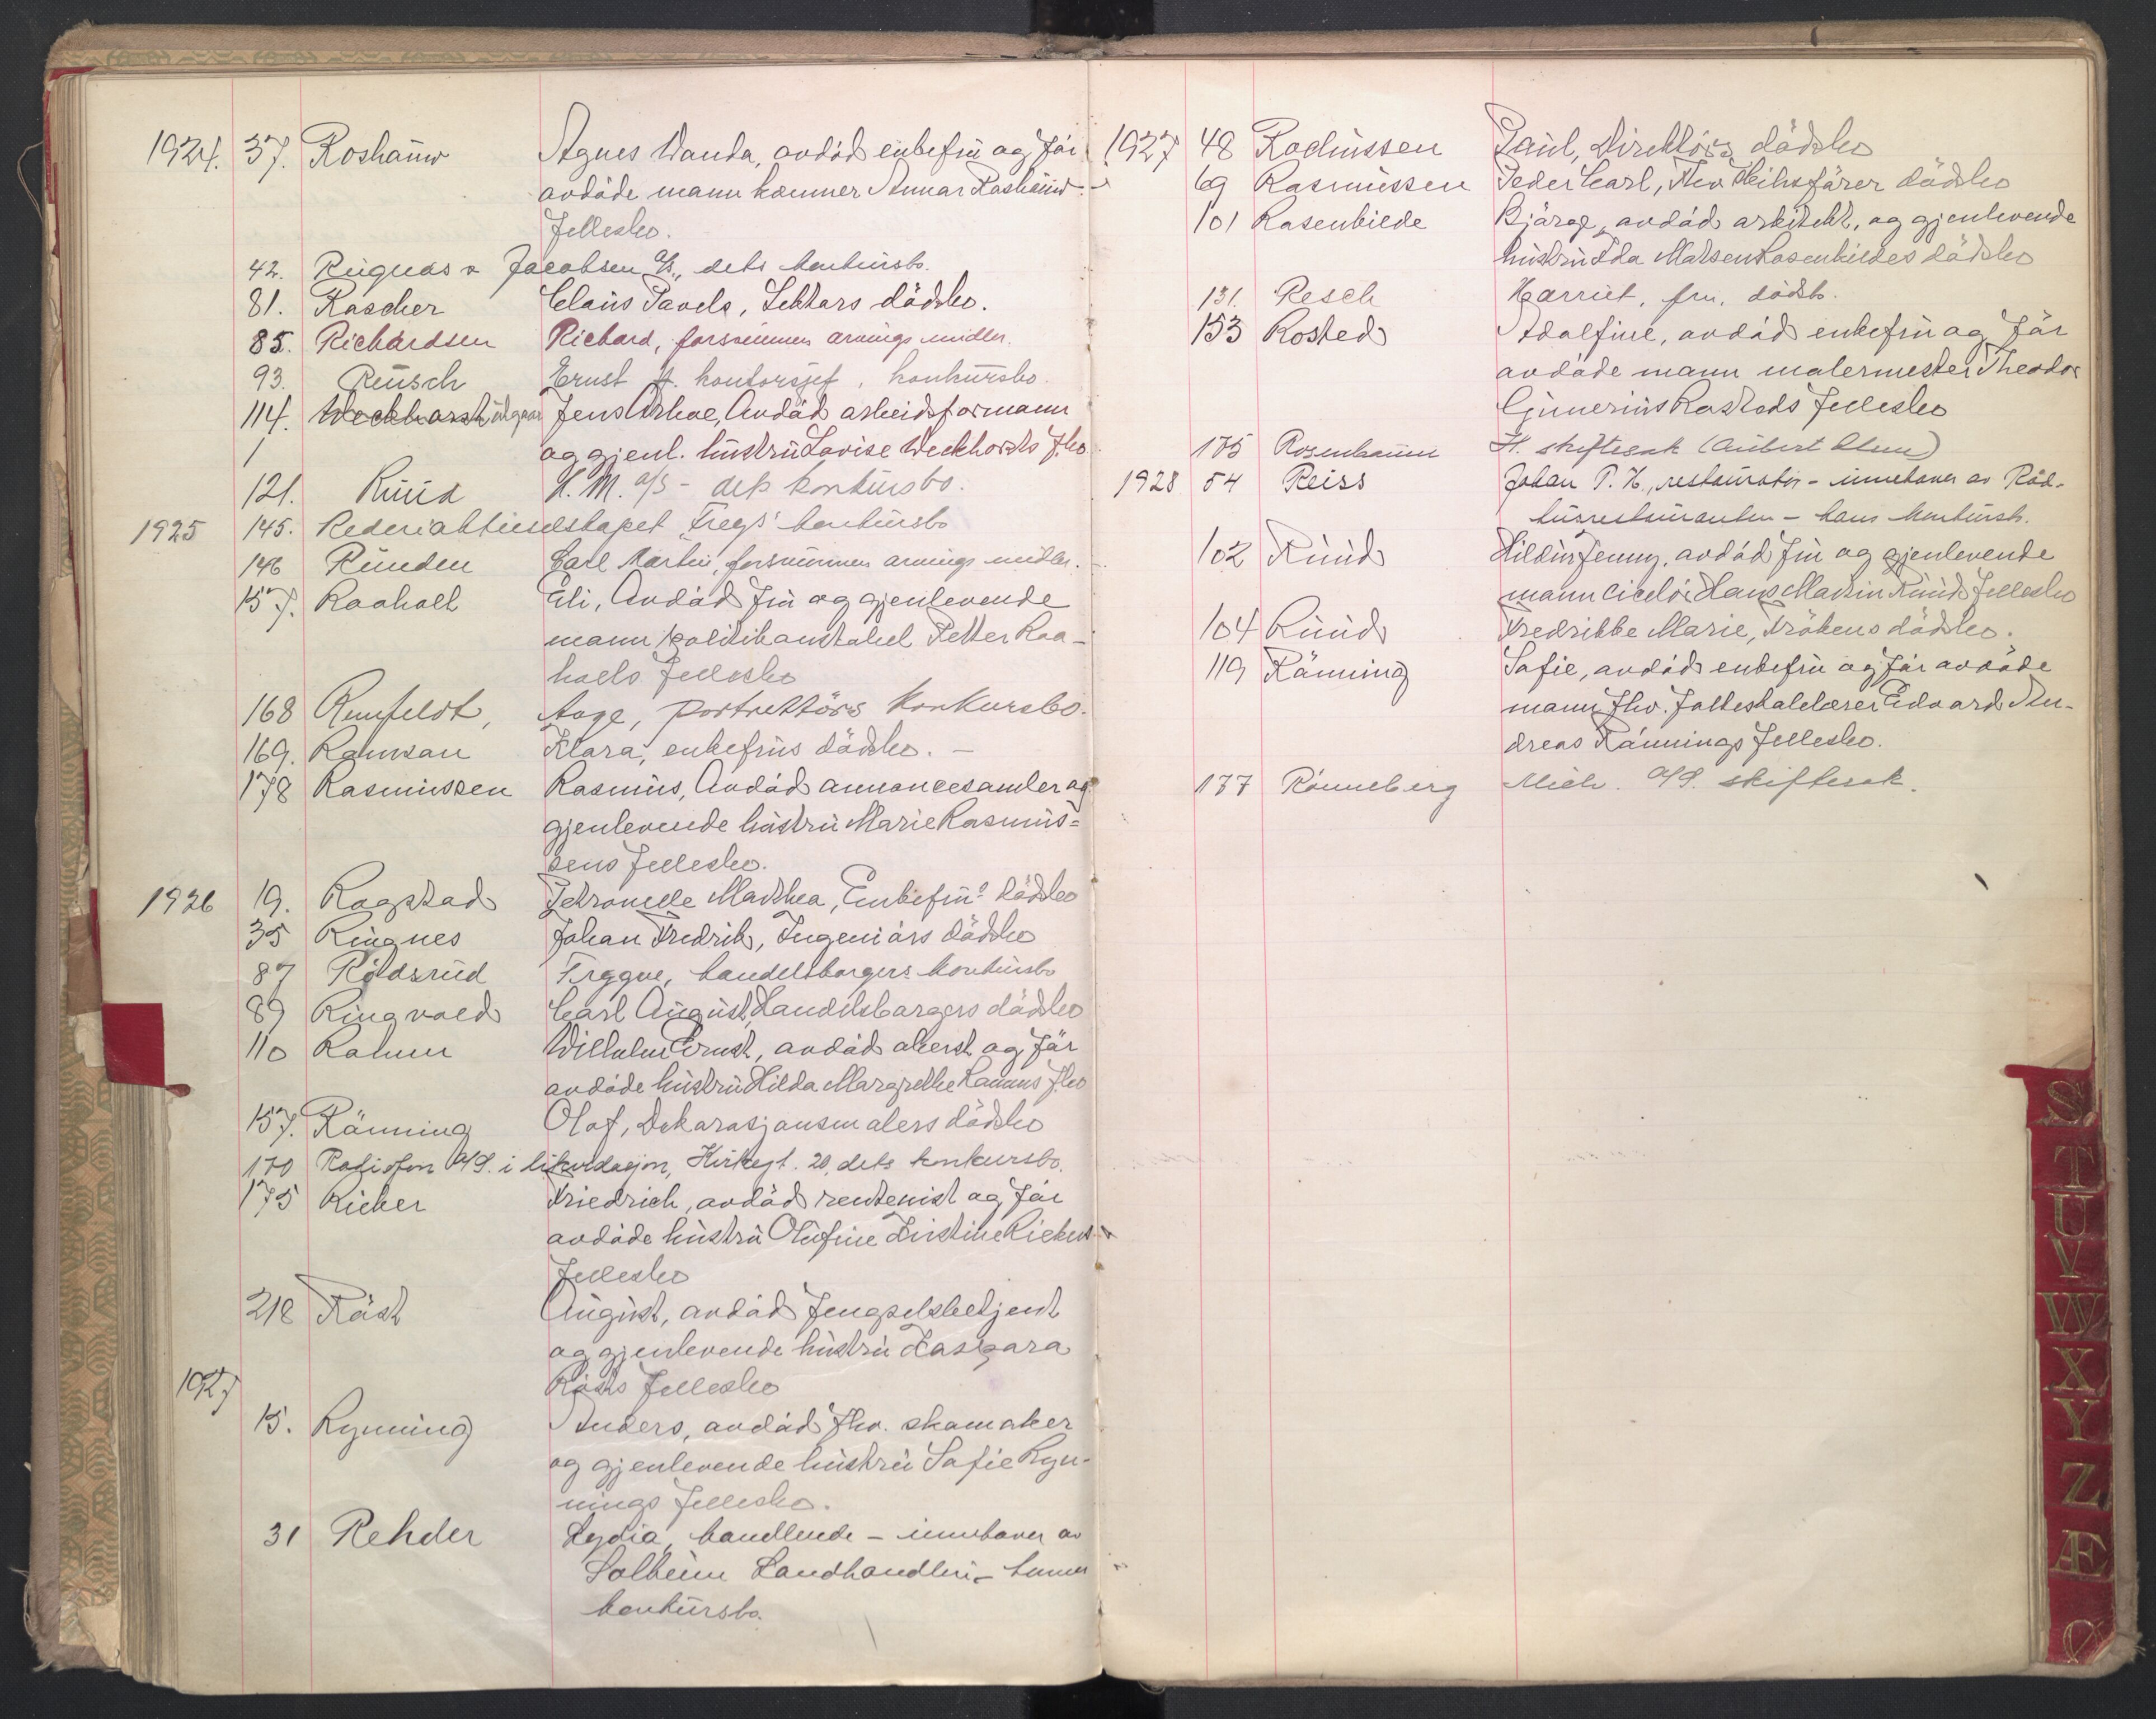 1924. 37. Roshauw Agnes Wanda, avdöd enkefru og før
avdöde mann kemner Annar Roshauw
fellesbo.
42. Rugnas & Jacobsen A/S, dets konkursbo.
81. Rascher Claus Pavels, Lektors dödsbo.
85. Richardsen Richard, forsvunnen arvings midler.
93. Reusch Ernst f. kontorsjef, konkursbo.
114. Weckhorst utgaar Jens Ashoe, Avdöd arbeidsformann
og gjenl. hustru Lovise Weckhorsts f.bo
121. Ruud K. M. A/S - dets konkursbo.
1925 145. Rederiaktieselskapet "Fregs" konkursbo
146 Runden Carl Martin, forsvunnen arvings midler.
157. Raaholt Eli, Avdöd fru og gjenlevende
mann politikonstabel Petter Raa-
holts fellesbo
168 Rumfeldt, Aage, portrettörs konkursbo.
169. Ramsan Klara, enkefrus dödsbo. -
178 Rasmussen Rasmus, Avdöd annoncesamler og
gjenlevende hustru Marie Rasmus=
sens fellesbo.
1926 19. Rogstad Petronelle Mathea, Enkefrus dödsbo
35 Ringnes Johan Fredrik, Ingeniörs dödsbo
87 Rödsrud Trygve, handelsborgers konkursbo
89 Ringvold Carl August, Handelsborgers dödsbo
110 Ramm Wilhelm Ernst, avdöd oberst og før
avdöde hustru Hilda Margrethe Ramms f.bo
157. Rönning Olaf, Dekorasjonsmalers dödsbo
170 Rafiofon A/S. i likvidasjon, Kirkegt. 20, dets konkursbo.
175 Ricker Friedrich, avdöd rentenist og før
avdöde hustru Olufine Kirstine Rickers
fellesbo
218 Röst August, avdöd fengselsbetjent
og gjenlevende hustru Kaspara
Rösts fellesbo
1927
15. Rynning Anders, avdöd fhv. skomaker
og gjenlevende hustru Sofie Ryn-
nings fellesbo.
31 Rehder Lydia, handlende - innehaver av
Solheim Landhandleri - hennes
konkursbo.
1927 48 Rodnissen Paul, Direktörs dödsbo
69 Rasmussen Peder Carl, Fhv. Skibsförer dödsbo
101 Rosenkilde Bjarne, avdöd arkitekt, og gjenlevende
hustru Ida Madsen Rosenkildes dödsbo
131. Resch Harriet, fru, dödsb.
153 Rosted Adolfine, avdöd enkefru og før
avdöde mann malermester Theodor
Gunerius Rosteds fellesbo
175 Rosenbaum H. skiftesak (Aubert Clem)
1928 54 Reiss Johan P. H., restauratör - innehaver av Råd-
husrestauranten - hans konkursb.
102 Ruud Hildur Jenny, avdöd fru og gjenlevende
mann ciselör Hans Martin Ruuds fellesbo
104 Ruud Fredrikke Marie, Frökens dödsbo.
119 Rönning Sofie, avdöd enkefru og før avdöde
mann fhv. folkeskolelærer Edvard An-
dreas Rönnings fellesbo.
177 Rönneberg Mich. A/S. skiftesak.
S
T
U
V
W
X
Y
Z
Æ
Ø